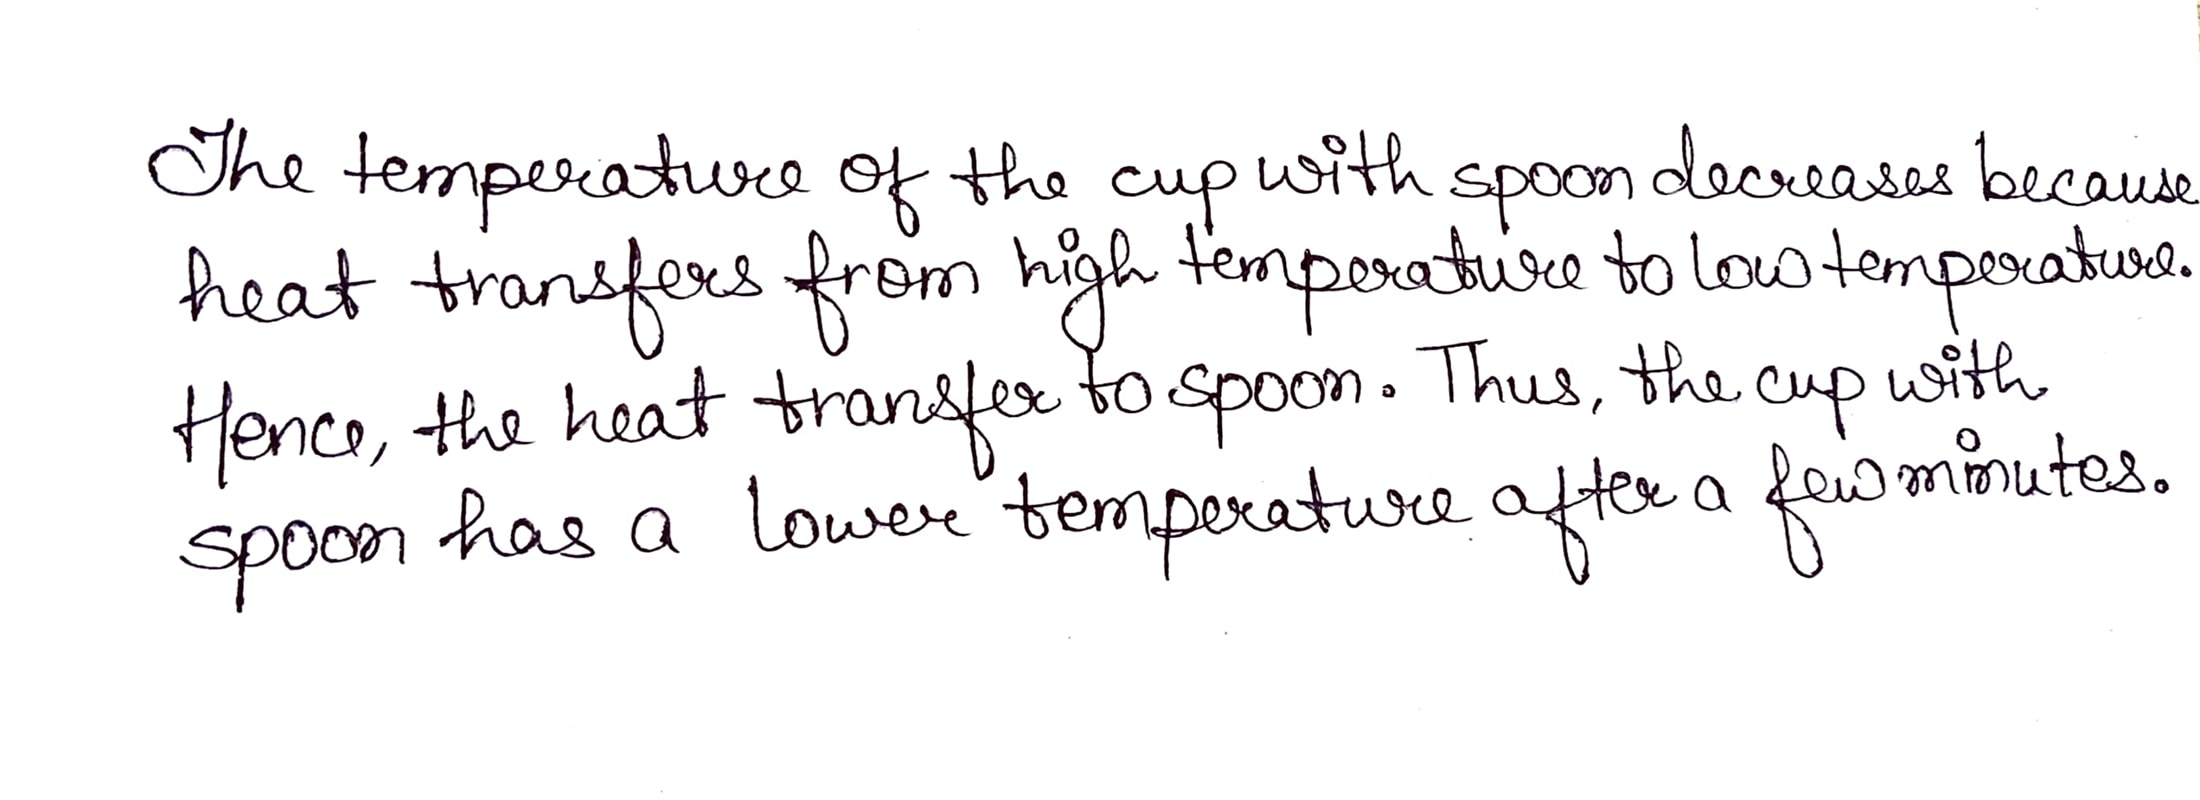 The temperature of the cup with spoon decreases because
heat transfers from high temperature to low temperature.
Hence, the heat transfer to spoon. Thus, the cup with
spoon has a lower temperature after a few minutes.